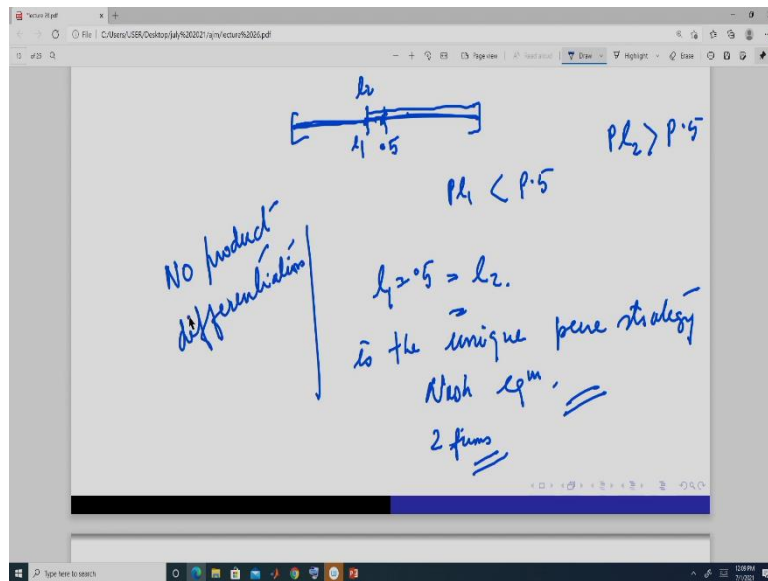 Lecture 26.pdf
File | C:/Users/USER/Desktop/july%202021/ajm/lecture%2026.pdf
13 of 25
Page view
Read aloud
Draw
Highlight
Erase
l2
l1 .5
Pl2 > P.5
Pl1 < P.5
No product
differentiation
l1 = .5 = l2.
is the unique pure strategy
Nash eqm.
2 firms
Type here to search
12:09 PM
7/1/2021